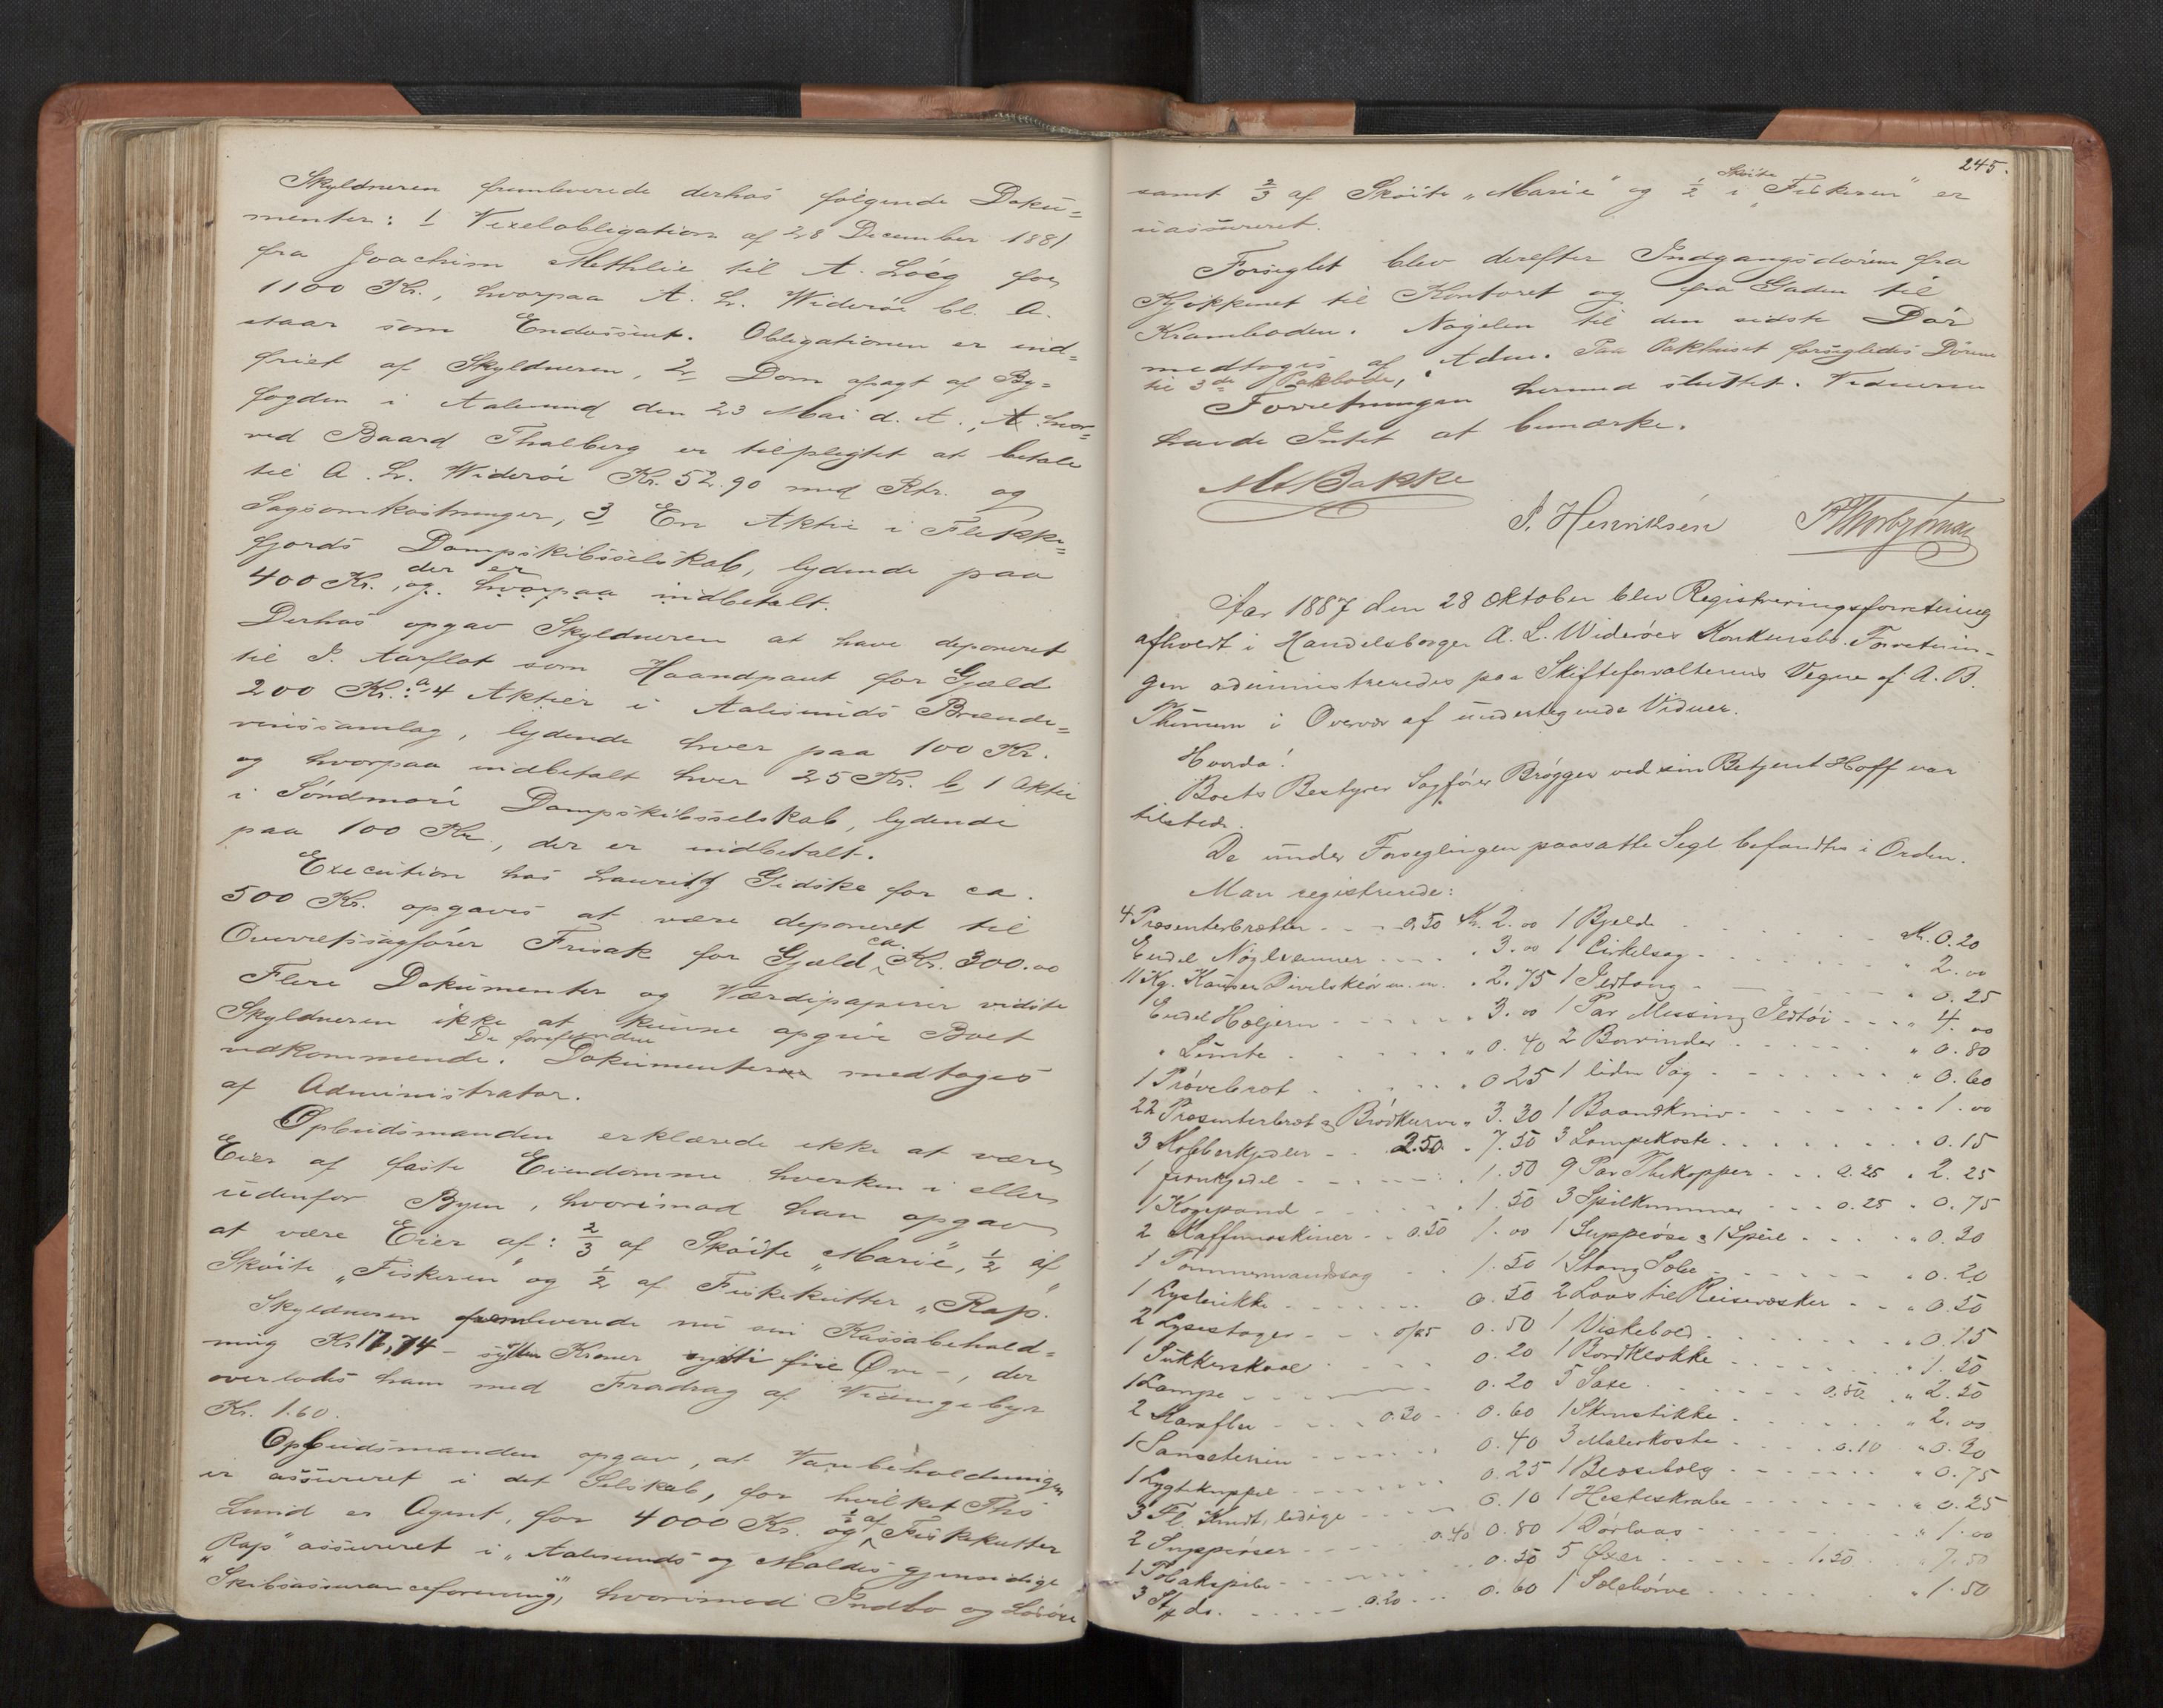 Skyldneren fremleverede derhos følgende Doku=
menter: 1 Vexelobligation af 28 December 1881
fra Joachim Methlie til A. Löeg for
1100 Kr., hvorpaa A. L. Widerøe bl. A.
staar som Endossent. Obligationen er ind=
friet af Skyldneren, 2, Dom afsagt af By=
fogden i Aalesund den 23 Mai d. A., hvor=
ved Baard Thalberg er tilpligtet at betale
til A. L. Widerøe Kr. 52.90 med Rtr. og
Sagsomkostninger, 3 En Aktie i Flekke=
fjords Dampskibsselskab, lydende paa
400 Kr., der er og hvorpaa indbetalt.
Derhos opgav Skyldneren at have deponeret
til P. Aarflot som Haandpant for Gjæld
200 Kr.: a, 4 Aktier i Aalesunds Brænde=
vinssamlag, lydende hver paa 100 Kr.
og hvorpaa indbetalt hver 25 Kr. b, 1 Aktie
i Söndmöre Dampskibsselskab, lydende
paa 100 Kr, der er indbetalt.
Execution hos Lauritz Gidske for ca.
500 Kr. opgaves at være deponeret til
Overretssagfører Frisak for Gjæld ca. Kr. 300.00
Flere Dokumenter og Værdipapirer vidste
Skyldneren ikke at kunne opgive Boet
vedkommende. De forefundne Dokumenter medtoges
af Administrator.
Opbudsmanden erklærede ikke at være
Eier af faste Eiendomme hverken i eller
udenfor Byen, hvorimod han opgav
at være Eier af: 2/3 af Skøite „Marie“, 1/2 af
Skøite „Fiskeren“ og 1/2 af Fiskekutter „Rap“.
Skyldneren fremleverede nu sin Kassabehold=
ning Kr 17,74 – sytten Kroner sytti fire Øre –, der
overlodes ham med Fradrag af Vidnegebyr
Kr. 1.60.
Opbudsmanden opgav, at Varebeholdningen
er assureret i det Selskab, for hvilket Ths
Lund er Agent, for 4000 Kr. og 1/2 af Fiskekutter
„Rap“ assureret i „Aalesunds og Moldes gjensidige
Skibsassuranceforening“, hvorimod Indbo og Løsøre
245.
samt 2/3 af Skøite „Marie“ og 1/2 i Skøite „Fiskeren“ er
uassureret.
Forseglet blev derefter Indgangsdøren fra
Kjøkkenet til Kontoret og fra Gaden til
Kramboden. Nøgelen til den sidste Dør
medtoges af Adm. Paa Pakhuset forsegledes Dørene
til 3de Pakbode,
Forretningen hermed sluttet. Vidnerne
havde Intet at bemærke.
M Bakke
P. Henriksen
Aar 1887 den 28 Oktober blev Registreringsforretning
afholdt i Handelsborger A. L. Widerøes Konkursbo. Forretnin-
gen administreredes paa Skifteforvalterens Vegne af A. B.
Thinem i Overvær af undertegnede Vidner.
Hvorda!
Boets Bestyrer Sagfører Brøgger ved sin Betjent Hoff var
tilstede.
De under Forseglingen paasatte Segl befandtes i Orden.
Man registrerede:
4 Præsenterbrætter - - - 0.50 Kr. 2.00 1 Bjelde - - - Kr. 0.20
Endel Nøglerammer - - - " 3.00 1 Cirkelsag - - - " 2.00
11 Kg. Kauser m. m. " 2.75 1 Ildtang - - - " 0.25
Endel Hæljern - - - " 3.00 1 Par Messing Ildtøi - - - " 4.00
" Lunte - - - " 0.40 2 Borvinder - - - " 0.80
1 Prøvebræt - - - " 0 25 1 liden Sag - - - " 0.60
22 Præsenterbræt & Brødkurve " 3.30 1 Baandkniv - - - " 1.00
3 Kobberkjedler - - 2.50 " 7.50 3 Lampekoste - - - " 0.15
1 Jernkjedel - - - " 1.50 9 Par Thekopper - - - 0.25 " 2.25
1 Kogepande - - - " 1.50 3 Spilkummer - - - 0.25 " 0.75
2 Kaffemaskiner - - 0.50 1.00 1 Suppeøse & 1 Speil - - - " 0.30
1 Tømmermandssag - - 1.50 1 Stang Sæbe - - - " 0.20
1 Lysterikke - - - 0.50 2 Laas til Reisevæsker - - " 0.50
2 Lysestager - - - 0.25 0.50 1 Viskebold - - - " 0.15
1 Sukkerskaal - - - 0.20 1 Bordklokke - - - " 1.50
1 Lampe - - - 0.20 5 Saxe - - - 0.50 " 2.50
2 Karafler - - - 0.30 0.60 1 Skruestikke - - - " 2.00
1 Sauseterrin - - - 0.40 3 Malerkoste - - - 0.10 " 0.30
1 Lygtekuppel - - - 0.25 1 Bessebolg - - - " 0.75
3 Fl. Kundt, ledige - - - 0.10 1 Hesteskrabe - - - " 0.25
2 Suppeøser - - - 0.40 0.80 1 Dørlaas - - - " 1.00
1 Tobakspibe - - - 0.50 5 Øxer - - - 1.50 " 7.50
3 Stk do. - - - 0.20 0.60 1 Solebørve - - - " 1.50